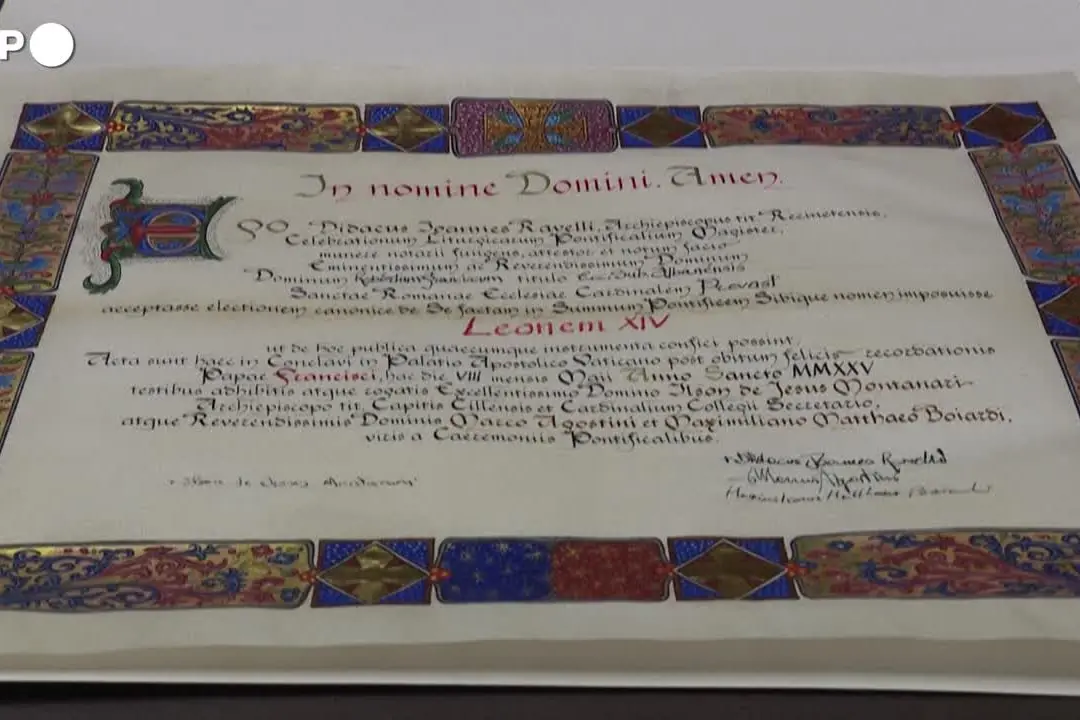 P
In nomine Domini. Amen.
EGO Didacus Ioannes Ravelli, Archiepiscopus tit. Recinetensis,
Celebrationum Liturgicarum Pontificalium Magister,
munere notarii fungens, attestor et notum facio
Eminentissimum ac Reverendissimum Dominum
Dominum Robertum Franciscum titulo Ecc. Sub. Albanensis
Sanctae Romanae Ecclesiae Cardinalem Prevost
acceptasse electionem canonice de Se factam in Summum Pontificem Sibique nomen imposuisse
Leonem XIV
ut de hoc publica quaecumque instrumenta confici possint.
Acta sunt haec in Conclavi in Palatio Apostolico Vaticano post obitum felicis recordationis
Papae Francisci, hac die VIII mensis Maii Anno Sancto MMXXV
testibus adhibitis atque rogatis Excellentissimo Domino Ilson de Jesus Montanari
Archiepiscopo tit. Capitis Cillensis et Cardinalium Collegii Secretario,
atque Reverendissimis Dominis Marco Agostini et Maximiliano Matthaeo Boiardi,
viris a Caeremoniis Pontificalibus.